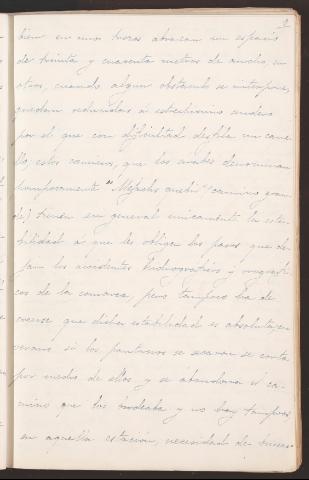 2
bien en unos trozos abrazan un espacio
de treinta y cuarenta metros de ancho, en
otros, cuando algun obstaculo se interpone,
quedan reducidos á estrechisimo sendero
por el que con dificultad desfila un came
llo; estos caminos, que los arabes denominan
pomposamente (camino gran
de) tienen en general unicamente la esta-
bilidad á que les obliga los pasos que de-
jan los accidentes hidrograficos y orografi-
cos de la comarca, pero tampoco ha de
creerse que dicha estabilidad es absoluta; en
verano si los pantanos se secan se corta
por medio de ellos y se abandona el ca-
mino que los bordeaba y no hay tampoco
en aquella estación, necesidad de buscar